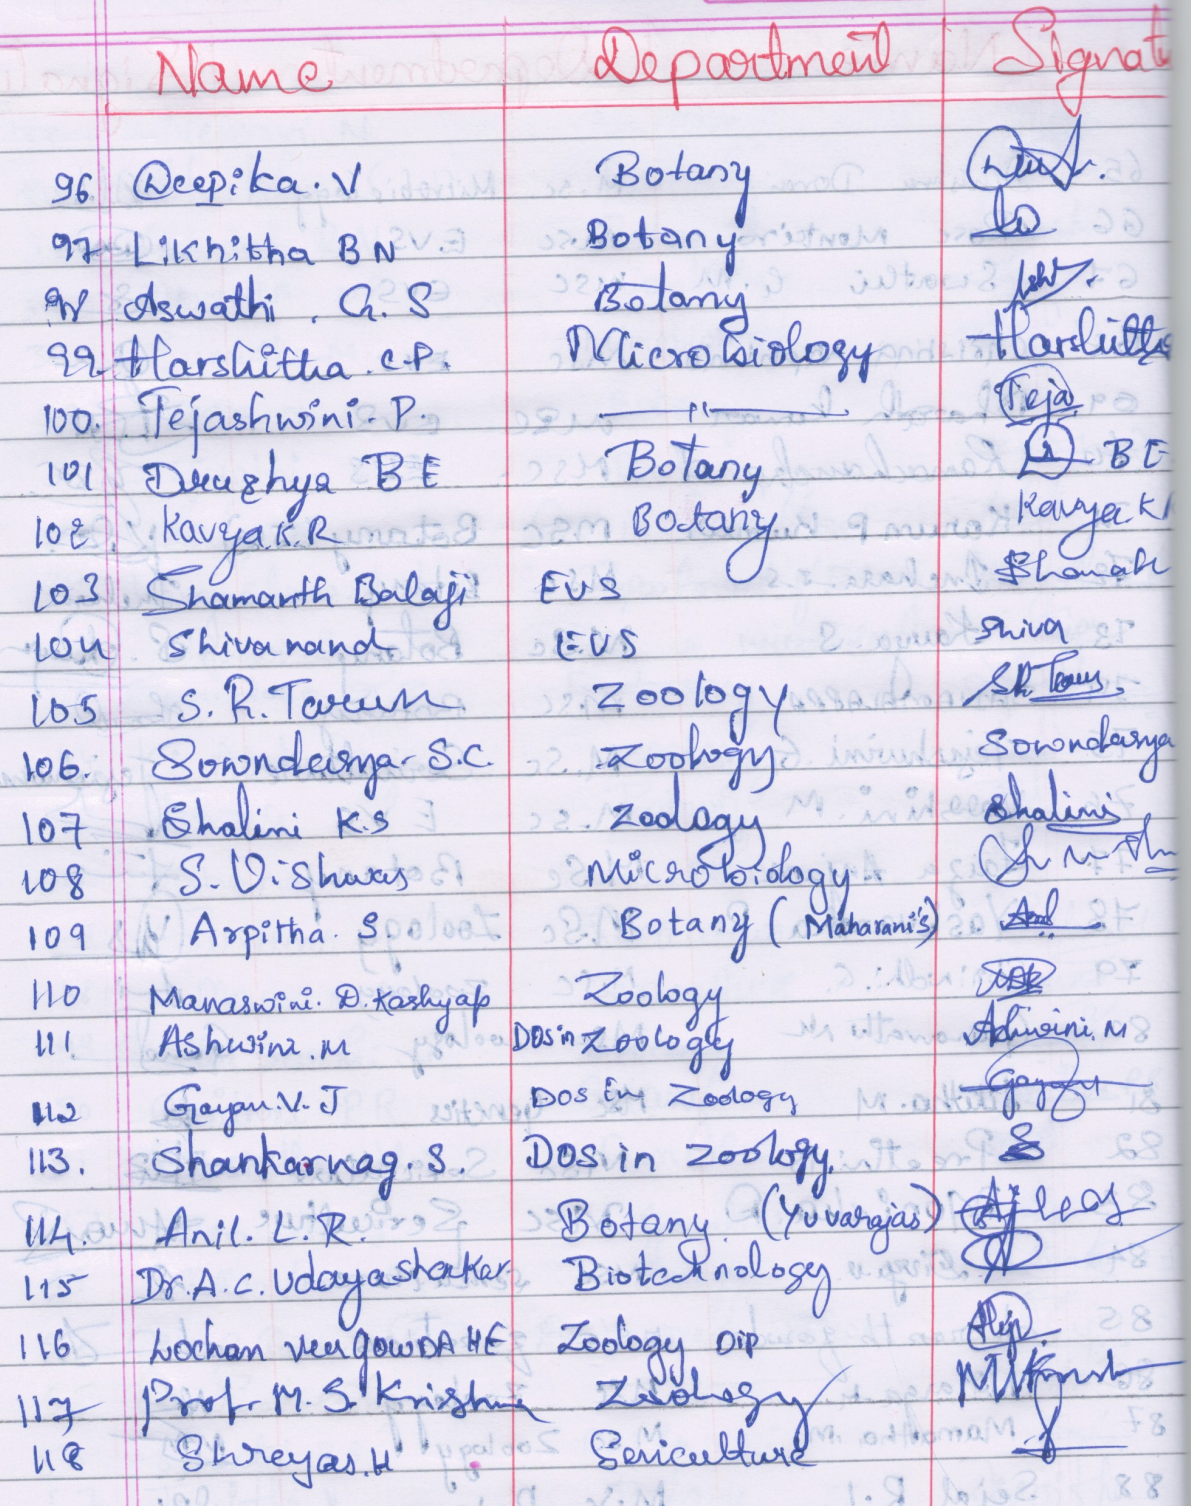 Name Department Signat
96. Deepika. V Botany
97. Likhitha B N Botany
98 Aswathi. G. S Botany
99. Harshitha. C.P. Microbiology Harshitha
100. Tejashwini. P. —"— Teja
101 B E Botany B E
102. Kavya. K. R Botany Kavya K
103 Shamanth Balaji EVS
104 Shivanand EVS Shiva
105 S. R. Tarun Zoology SR Tarun
106. Sowndarya. S.C. Zoology Sowndarya
107 Shalini K.S Zoology Shalini
108 S. Vishwas Microbiology
109 Arpitha. S Botany (Maharani's)
110 Manaswini. D. Kashyap Zoology
111 Ashwini. M DOS in Zoology Ashwini. M
112 V. J DOS in Zoology
113. Shankarnag. S. DOS in Zoology.
114. Anil. L. R. Botany. (Yuvarajas)
115 Dr. A. C. Udayashankar. Biotechnology
116 Lochan Veer Gowda HE Zoology DIP
117 Prof. M. S. Krishna Zoology
118 Shreyas. H Sericulture